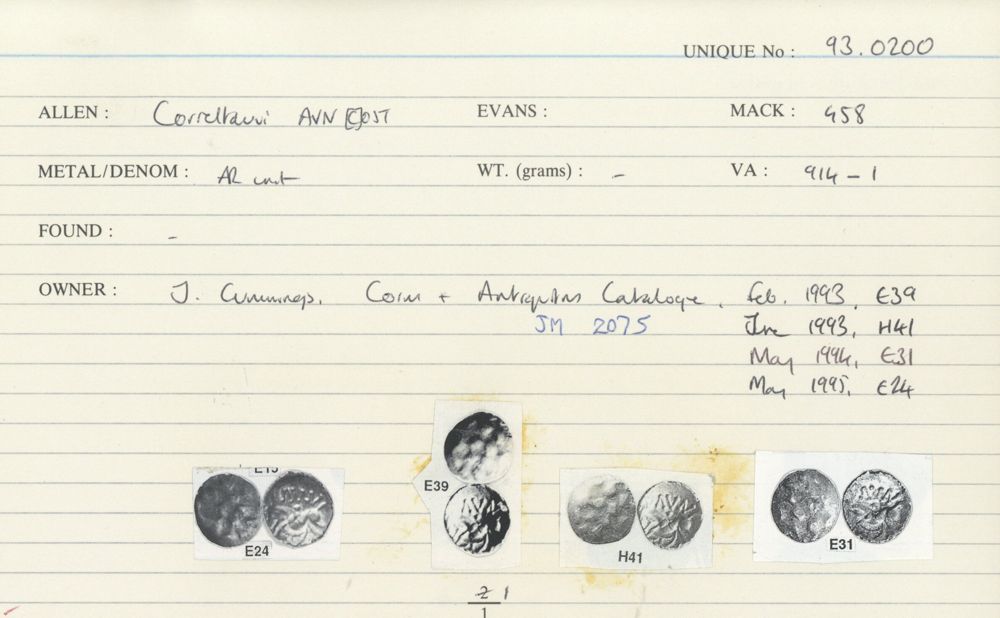 UNIQUE No : 93.0200
ALLEN : Correltauvi AVN [C]OST EVANS : MACK : 458
METAL/DENOM : AR unit WT. (grams) : – VA : 914 – 1
FOUND : –
OWNER : J. Cummings, Coins + Antiquities Catalogue, Feb. 1993, E39
JM 2075 June 1993, H41
May 1994, E31
May 1995, E24
E15
E39
E24
H41
E31
2 1
1